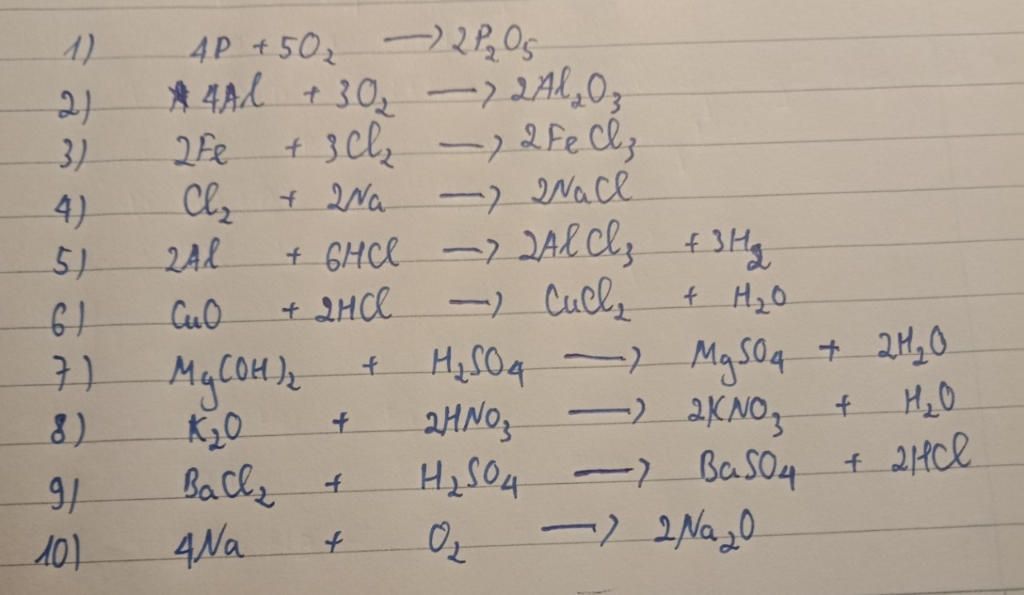 1) 4P + 5O₂ → 2P₂O₅
2) 4Al + 3O₂ → 2Al₂O₃
3) 2Fe + 3Cl₂ → 2FeCl₃
4) Cl₂ + 2Na → 2NaCl
5) 2Al + 6HCl → 2AlCl₃ + 3H₂
6) CuO + 2HCl → CuCl₂ + H₂O
7) Mg(OH)₂ + H₂SO₄ → MgSO₄ + 2H₂O
8) K₂O + 2HNO₃ → 2KNO₃ + H₂O
9) BaCl₂ + H₂SO₄ → BaSO₄ + 2HCl
10) 4Na + O₂ → 2Na₂O